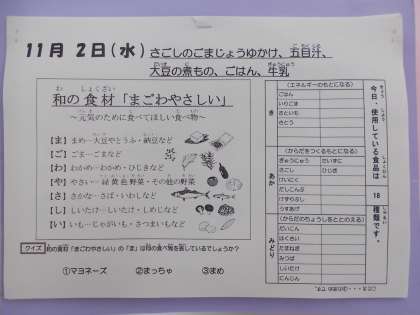 11月 2日(水) さごしのごまじょうゆかけ、五目汁、
大豆の煮もの、ごはん、牛乳
和の食材「まごわやさしい」
～元気のために食べてほしい食べ物～
【ま】まめ…大豆やとうふ・納豆など
【ご】ごま…ごまなど
【わ】わかめ…わかめ・ひじきなど
【や】やさい…緑黄色野菜・その他の野菜
【さ】さかな…さば・いわしなど
【し】しいたけ…しいたけ・しめじなど
【い】いも…じゃがいも・さつまいもなど
クイズ
和の食材「まごわやさしい」の「ま」は何の食べ物を表しているでしょうか？
①マヨネーズ ②まっちゃ ③まめ
今日、使用している食品は 18 種類です。
(エネルギーのもとになる)
き
ごはん
いりごま
さといも
さとう
(からだをつくるもとになる)
あか
ぎゅうにゅう だいず
さごし ひじき
けいにく
(からだのちょうしをととのえる)
みどり
だいこん
はくさい
たまねぎ
みつば
しいたけ
にんじん